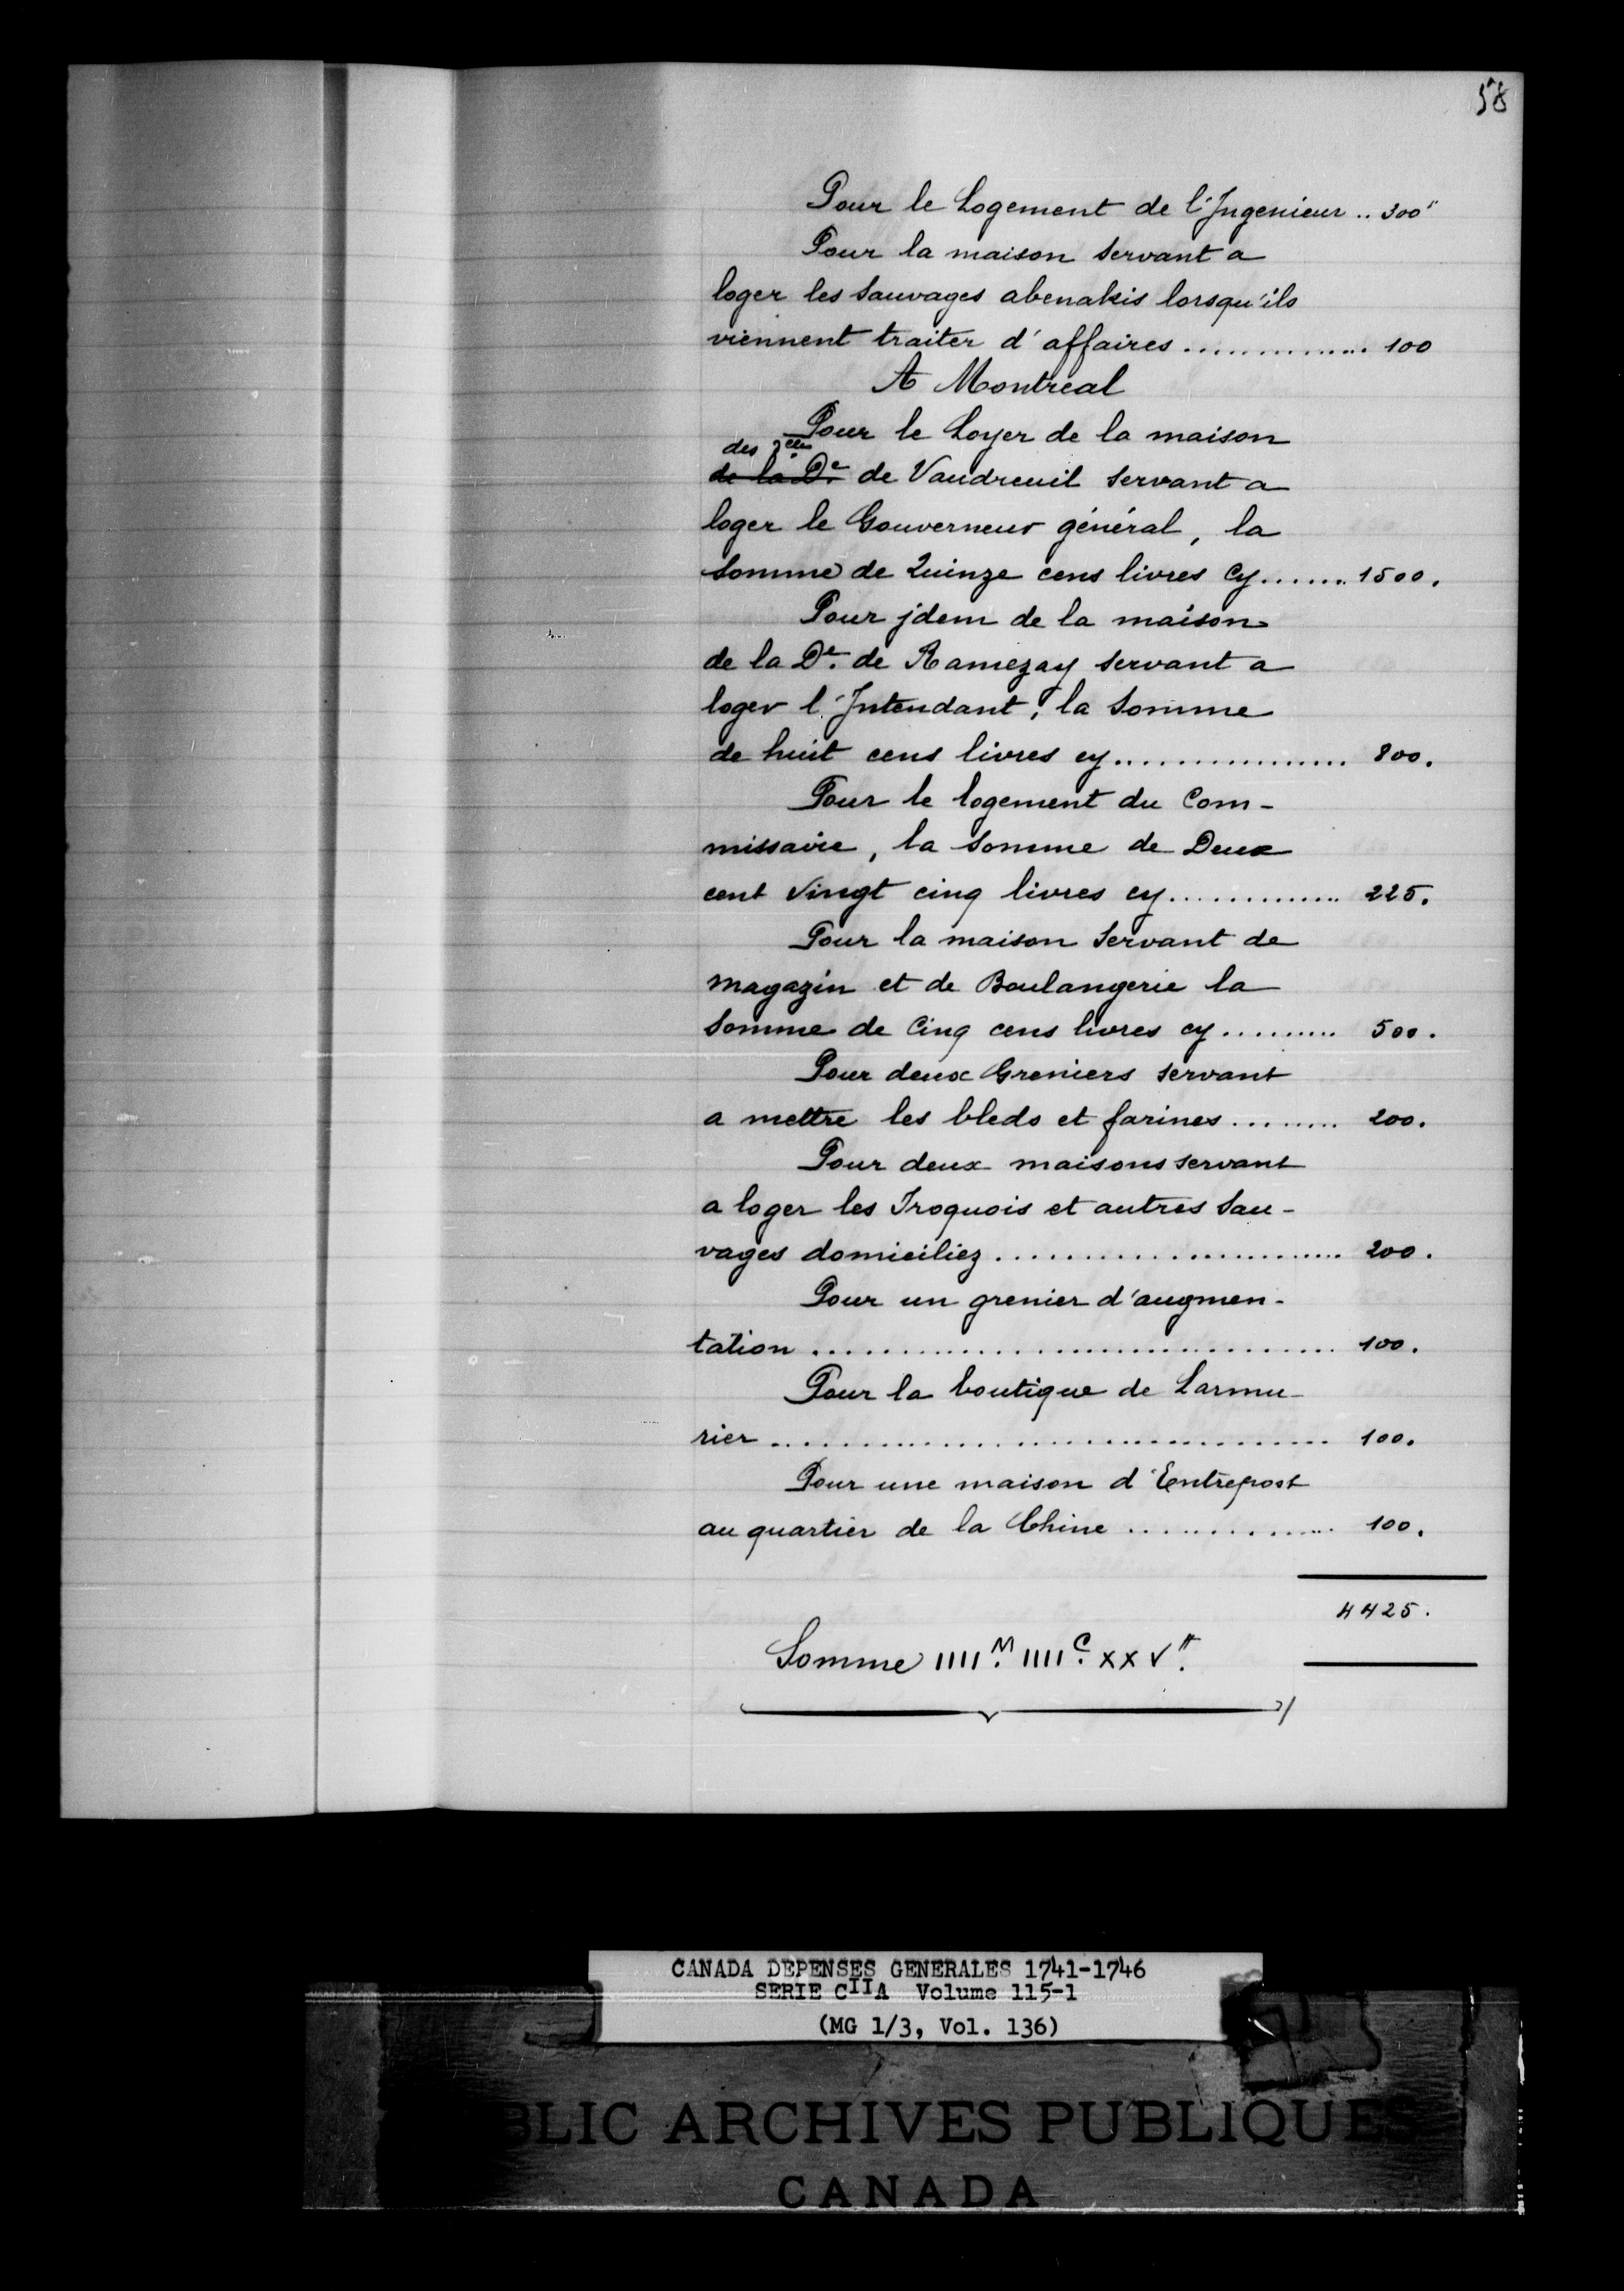 58
Pour le Logement de l'Ingenieur .. 300"
Pour la maison servant a
loger les Sauvages abenakis lorsqu'ils
viennent traiter d'affaires .............. 100
A Montreal
Pour le Loyer de la maison
des
de la De. de Vaudreuil servant a
loger le Gouverneur général, la
Somme de Quinze cens livres Cy....... 1500.
Pour jdem de la maison
de la De. de Ramezay servant a
loger l'Intendant, la Somme
de huit cens livres cy................. 800.
Pour le logement du Com-
missaire, la Somme de Deux
cent Vingt cinq livres cy.............. 225.
Pour la maison Servant de
magazin et de Boulangerie la
Somme de Cinq cens livres cy.......... 500.
Pour deux Greniers servant
a mettre les bleds et farines......... 200.
Pour deux maisons servant
a loger les Iroquois et autres Sau-
vages domiciliez........................ 200.
Pour un grenier d'augmen-
tation .................................... 100.
Pour la boutique de Larmu-
rier....................................... 100.
Pour une maison d'Entrepost
au quartier de la Chine .............. 100.
4425.
Somme IIII M. IIII C. XXV ₶.
CANADA DEPENSES GENERALES 1741-1746
SERIE CIIA Volume 115-1
(MG 1/3, Vol. 136)
BLIC ARCHIVES PUBLIQUES
CANADA